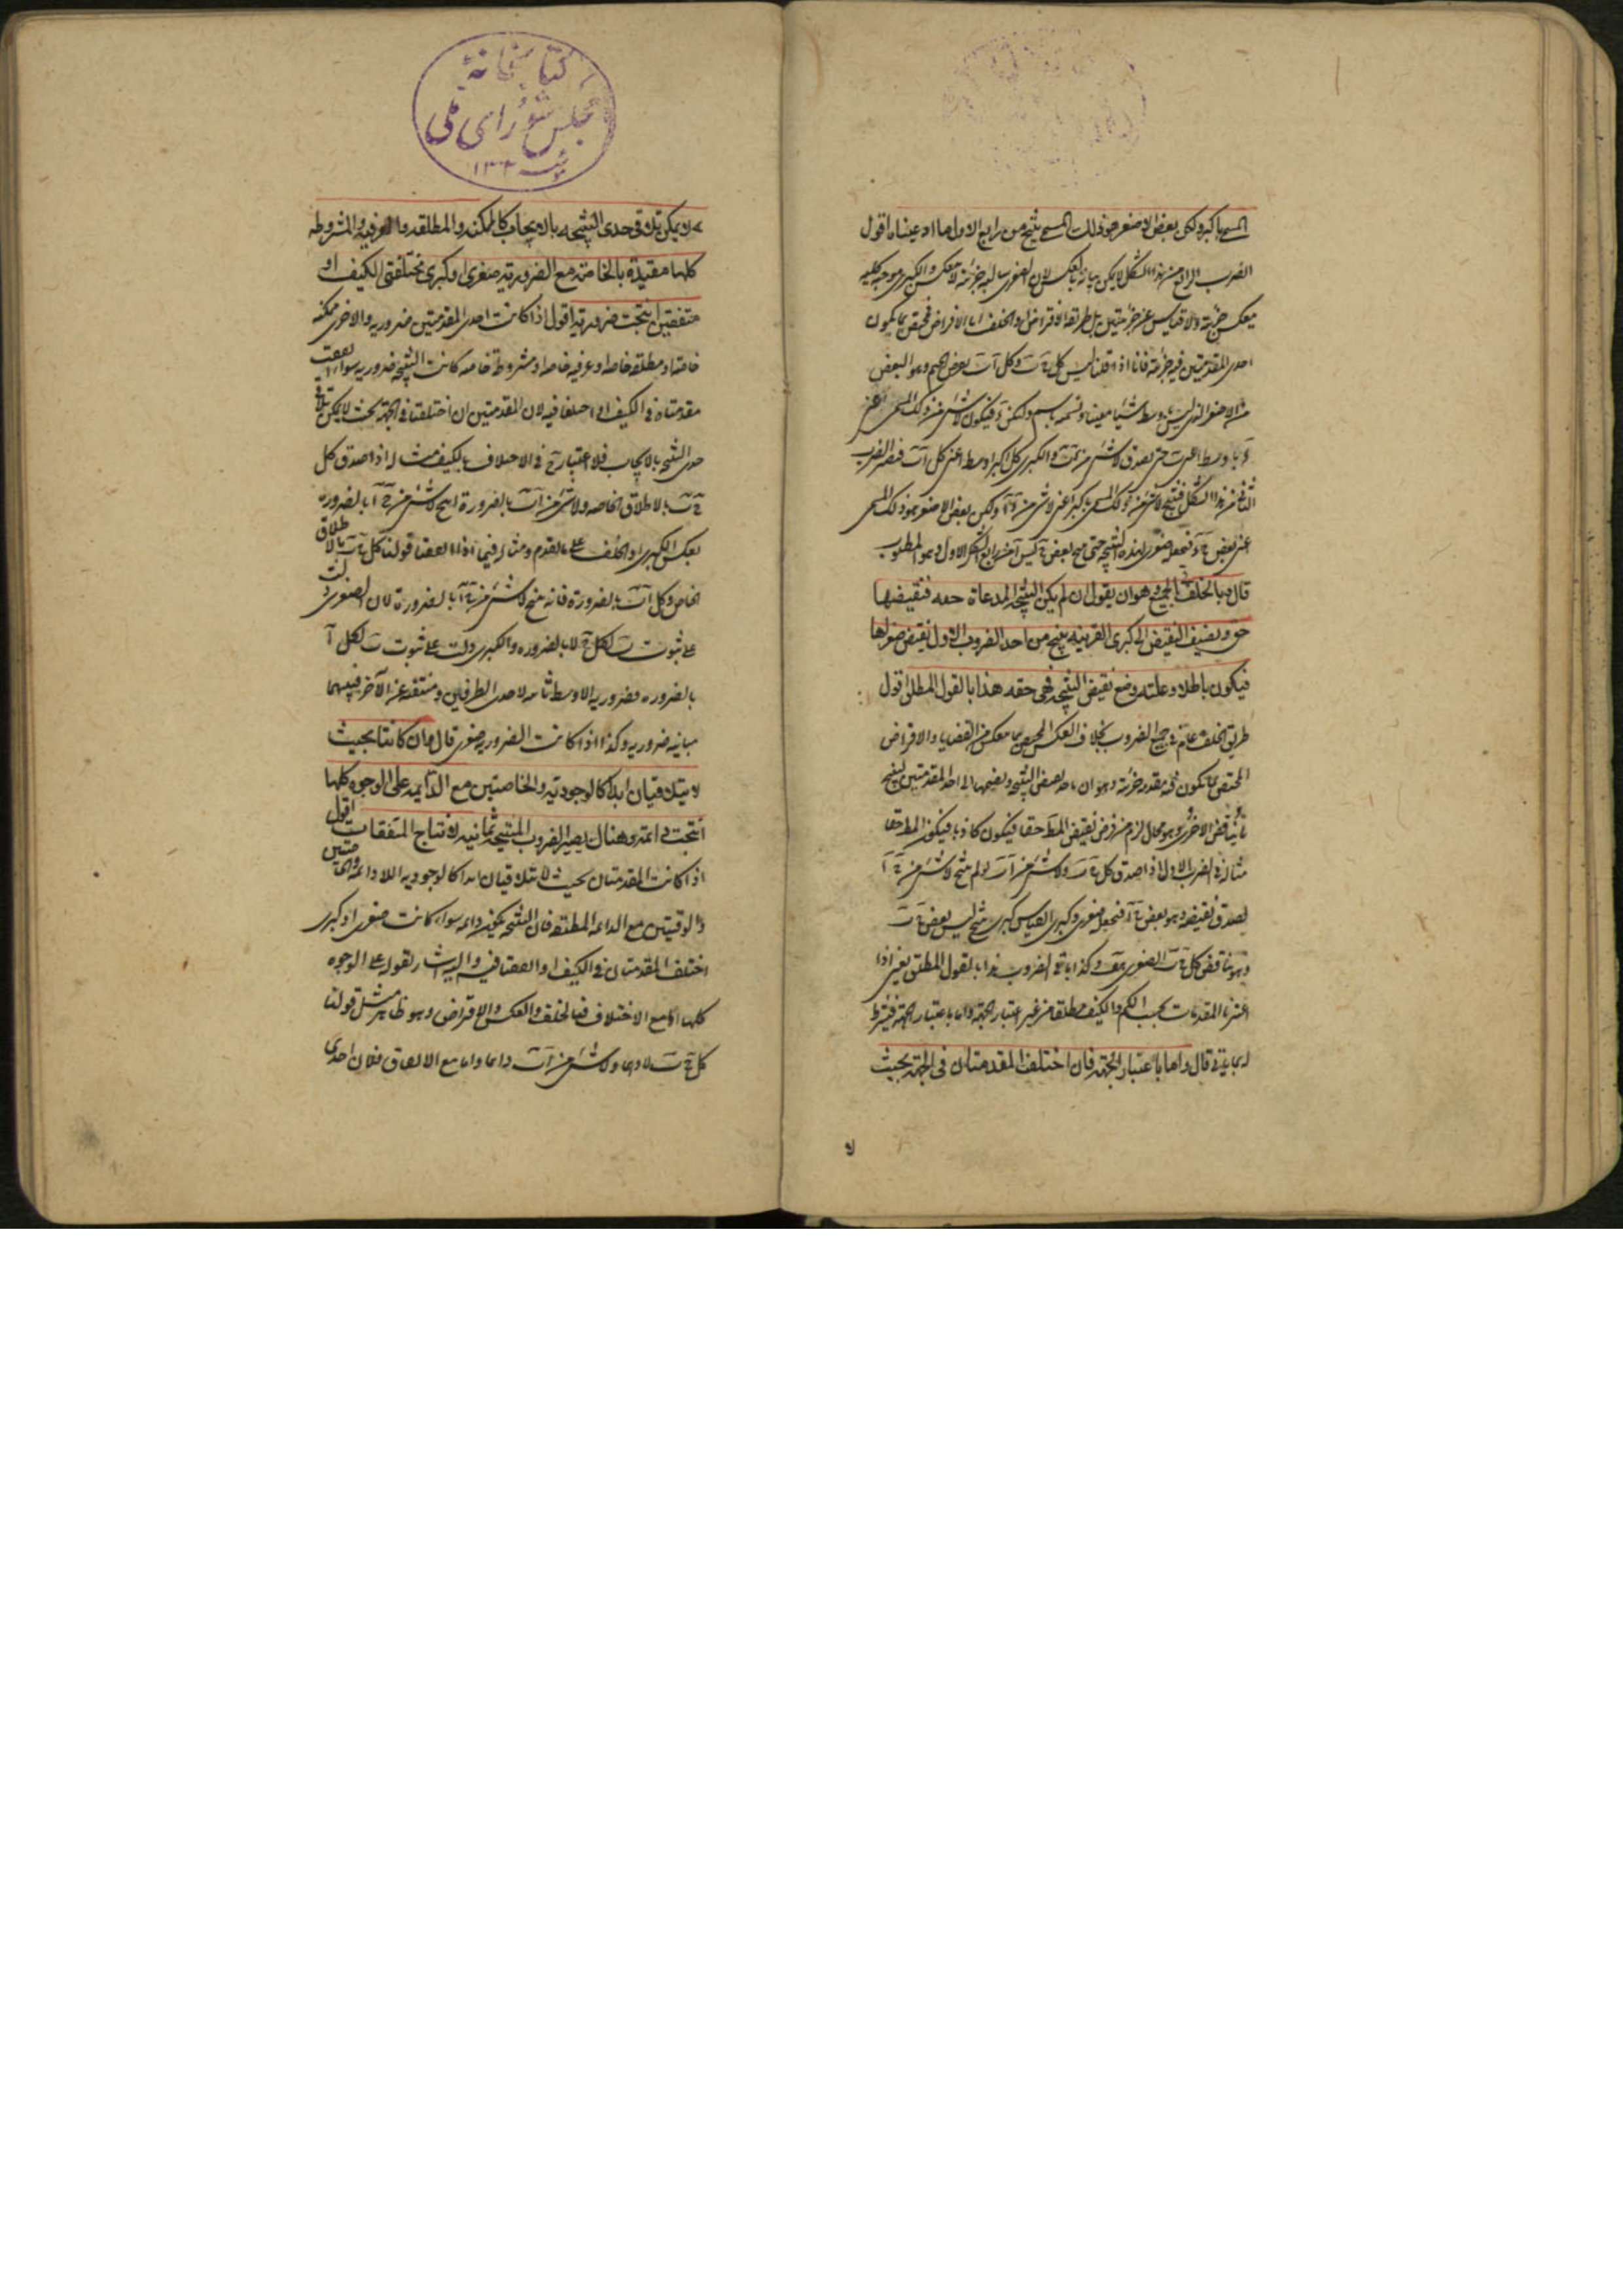 المسمى باكبر ولكن بعض الاصغر هو ذلك المسمى ينتج من رابع الاول ما ادعيناه اقول
الضرب الرابع من هذا الشكل لا يمكن بيانه بالعكس لان الصغرى سالبة جزئية لا تنعكس والكبرى موجبة كلية
ينعكس جزئية ولا قياس عن جزئيتين بل طريقه الافتراض او الخلف اما الافتراض فيختص بما يكون
احدى المقدمتين فيه جزئية فانا اذا قلنا ليس كل ج ب وكل آ ب
من الاصغر الذى ليس باوسط شيئا معينا ونسميه باسم وليكن د فيكون لا شئ من ذلك المسمى اعنى
د باوسط اعنى ب حتى يصدق لا شئ من د ب والكبرى كل اكبر اوسط اعنى كل آ ب فيصير الضرب
الثانى من هذا الشكل فينتج لا شئ من ذلك المسمى باكبر اعنى لا شئ من د آ ولكن بعض الاصغر هو ذلك المسمى
اعنى بعض ج د فنجعله صغرى لهذه النتيجة حتى ينتج بعض ج ليس آ من رابع الشكل الاول وهو المطلوب
قال وبالخلف فى الجميع وهو ان يقول ان لم يكن النتيجة المدعاة حقه فنقيضها
حق ونضيف النقيض الى كبرى القرينة ينتج من احد الضروب الاول نقيض صغراها
فيكون باطلا وعلته وضع نقيض النتيجة فهى حقه هذا بالقول المطلق اقول
طريق الخلف عام فى جميع الضروب بخلاف العكس المختص بما ينعكس من القضايا والافتراض
المختص بما يكون فيه مقدمة جزئية وهو ان ياخذ نقيض النتيجة ويضمها الى احدى المقدمتين لينتج
ما يناقض الاخرى وهو محال لزم من فرض نقيض المط حقا فيكون كاذبا فيكون المط حقا
مثاله فى الضرب الاول اذا صدق كل ج ب ولا شئ من آ ب لو لم ينتج لا شئ من ج آ
لصدق نقيضه وهو بعض ج آ فنجعله صغرى وكبرى القياس كبرى ينتج ليس بعض ج ب
وهو يناقض كل ج ب الصغرى هف وكذا باقى الضروب هذا بالقول المطلق يعنى اذا
اعتبرنا المقدمات بحسب الكم والكيف مطلقا من غير اعتبار الجهة واما باعتبار الجهة فيشترط
قال واما باعتبار الجهة فان اختلف المقدمتان فى الجهة بحيث
لا
كتابخانهٔ
مجلس شورای ملی
لا يمكن تلاقى حدى النتيجه بالايجاب كالممكنه والمطلقه والعرفيه والمشروطه
كلها مقيدة بالخاصه مع الضروريه صغرى او كبرى مختلفتى الكيف او
متفقتين انتجت ضروريه اقول اذا كانت احدى المقدمتين ضروريه والاخرى ممكنه
خاصه او مطلقه خاصه او عرفيه خاصه او مشروطه خاصه كانت النتيجه ضروريه سواء اتفقت
مقدمتاه فى الكيف او اختلفا فيه لان المقدمتين ان اختلفتا فى الجهة بحيث لا يمكن تلاقى
حدى النتيجه بالايجاب فلا اعتبار ح فى الاختلاف بالكيف مثاله اذا صدق كل
ج ب بالاطلاق الخاصه ولا شئ من آ ب بالضرورة انتج لا شئ من ج آ بالضروره
بعكس الكبرى او الخلف على ما تقدم ومثاله فيما اذا اتفقتا قولنا كل ج ب بالاطلاق
الخاص وكل آ ب بالضروره فانه ينتج لا شئ من ج آ بالضرورة لان الصغرى دلت
على ثبوت ب لكل ج لا بالضروره والكبرى دلت على ثبوت ب لكل آ
بالضروره فضروريه الاوسط ثابته لاحد الطرفين ومنتفيه عن الآخر فبينهما
مباينه ضروريه وكذا اذا كانت الضروريه صغرى قال وان كانتا بحيث
لا يتلاقيان ابدا كالوجوديه والخاصتين مع الدائمه على الوجوه كلها
انتجت دائمة وهنالك يصير الضروب المنتجة ثمانيه لانتاج المتفقات اقول
اذا كانت المقدمتان بحيث لا يتلاقيان ابدا كالوجوديه اللادائمه والخاصتين
والوقتيتين مع الدائمه المطلقه فان النتيجه يكون دائمه سواء كانت صغرى او كبرى
اختلف المقدمتان فى الكيف او اتفقتا فيه واليه اشار بقوله على الوجوه
كلها اما مع الاختلاف فبالخلف والعكس والافتراض وهو ظاهر مثل قولنا
كل ج ب لا دائما ولا شئ من آ ب دائما واما مع الاتفاق فلان احدى